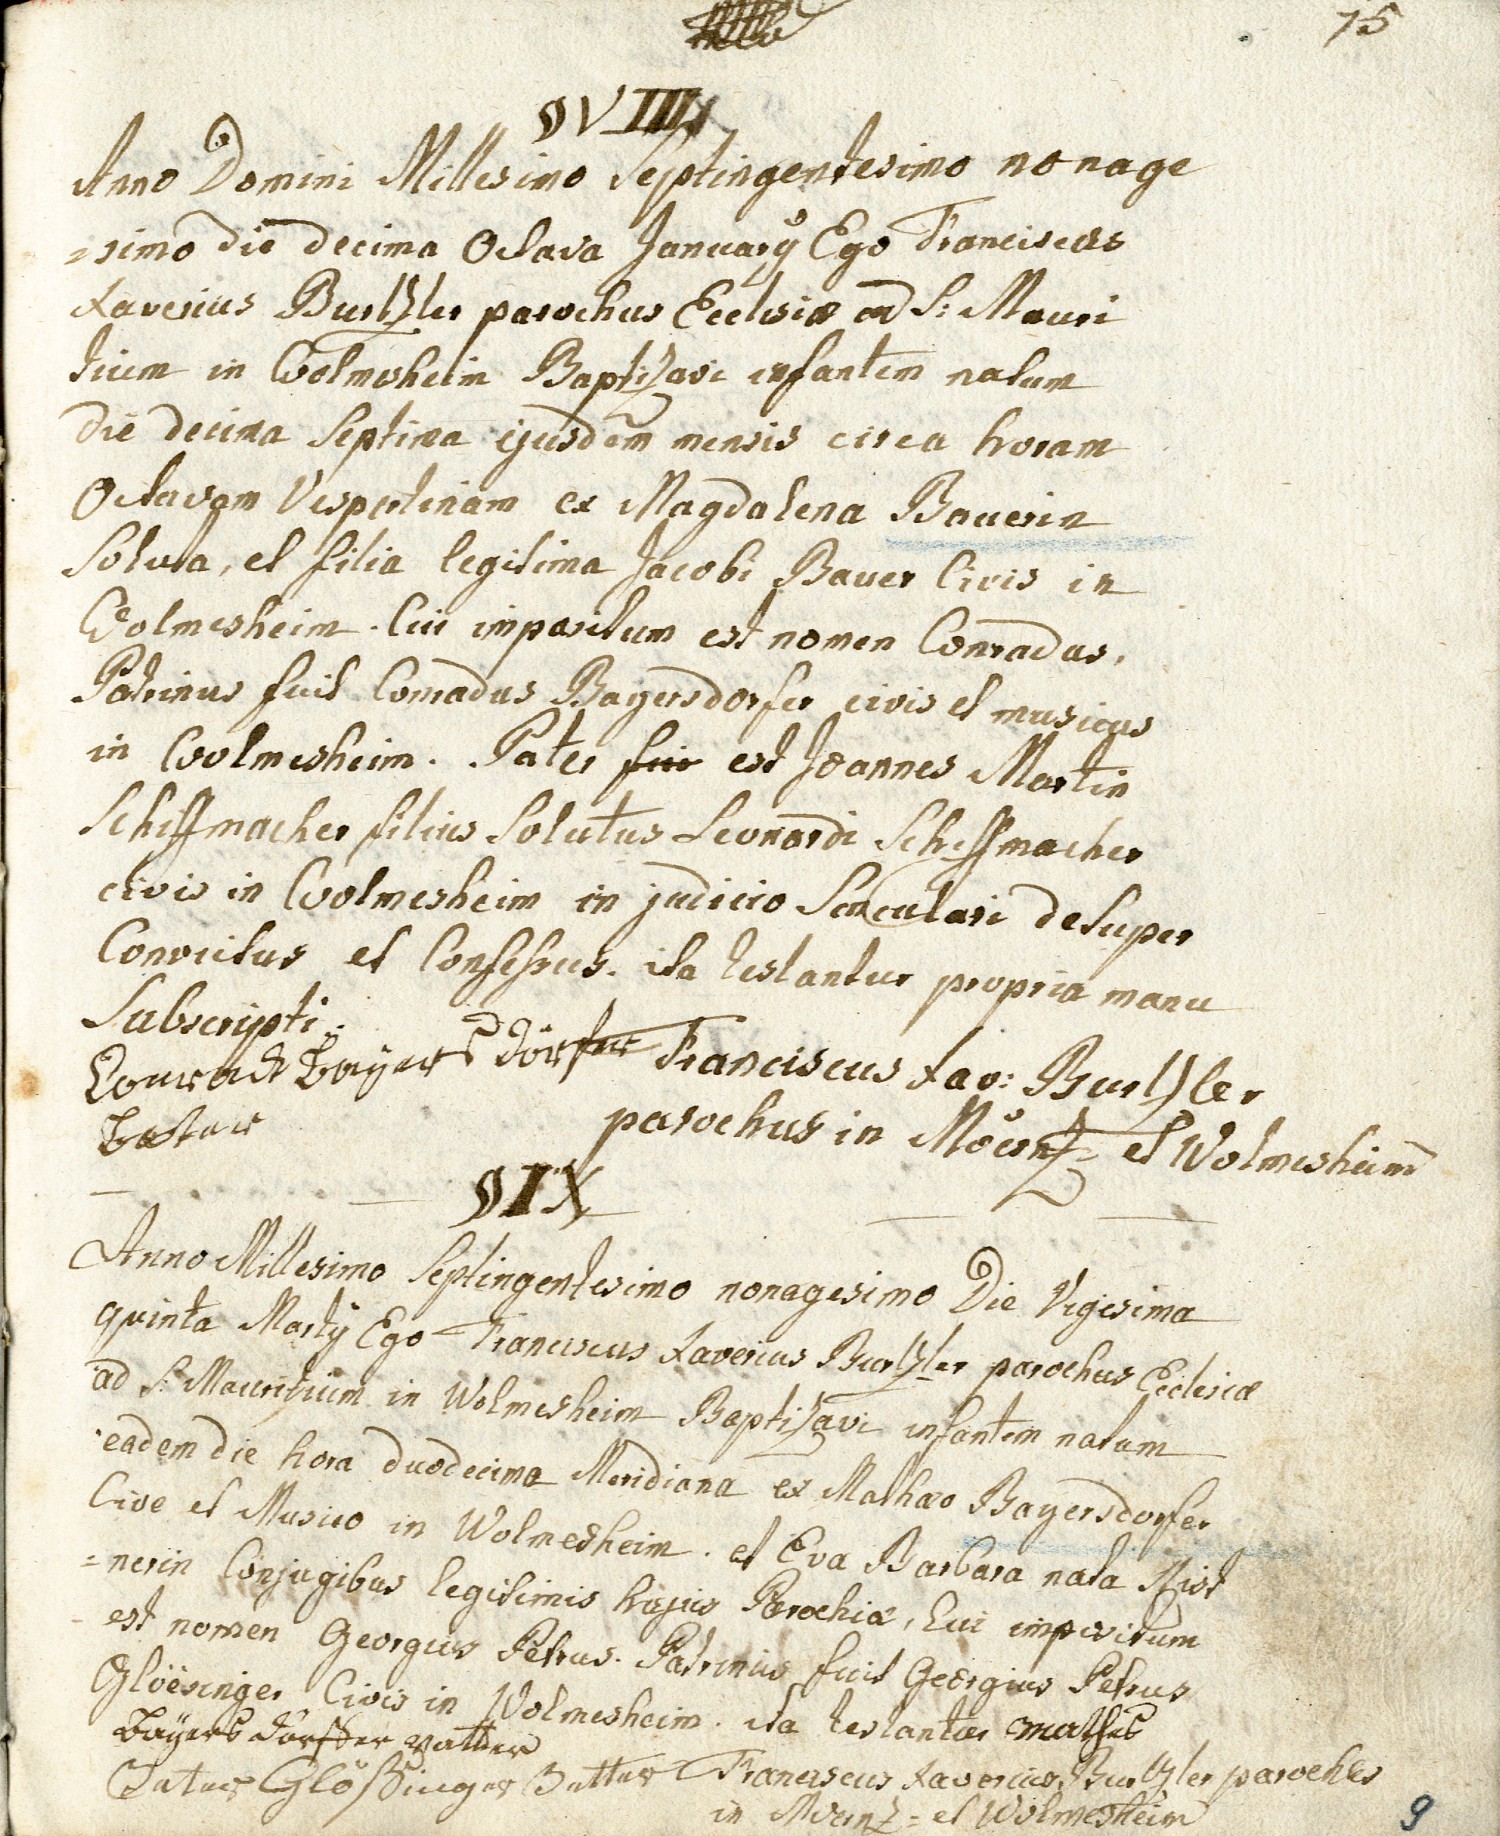 75
§ VIII
Anno Domini Millesimo Septingentesimo nonage
=simo die decima Octava Januarÿ Ego Franciscus
Xaverius Burtzler parochus Ecclesiæ ad S: Mauri
tium in Wolmesheim Baptizavi infantem natum
die decima Septima ejusdem mensis circa horam
Octavam Vespertinam ex Magdalena Bauerin
Soluta, et filia legitima Jacobi Bauer Civis in
Wolmesheim. Cui impositum est nomen Conradus,
Patrinus fuit Conradus Bayersdorfer civis et musicus
in Wolmesheim. Pater est Joannes Martin
Schiffmacher filius Solutus Leonardi Schiffmacher
civis in Wolmesheim in judicio Sæculari desuper
Convictus et Confessus. ita testantur propria manu
Subscripti:
Conradt Bayersdörfer Franciscus Xav: Burtzler
parochus in Möerntz= et Wolmesheim
§ IX
Anno Millesimo Septingentesimo nonagesimo Die Vigesima
quinta Martÿ Ego Franciscus Xaverius Burtzler parochus Ecclesiæ
ad S: Mauritium in Wolmesheim Baptizavi infantem natum
eadem die hora duodecima Meridiana ex Mathæo Bayersdorfer
Cive et Musico in Wolmesheim. et Eva Barbara nata Kist
=nerin Conjugibus legitimis hujus Parochiæ, Cui impositum
est nomen Georgius Petrus. Patrinus fuit Georgius Petrus
Glöesinger Civis in Wolmesheim. ita testantur Mathes
Bayersdörffer vatter
Peter Glößinger Franciscus Xaverius Burtzler parochus
in Moerntz= et Wolmesheim
9